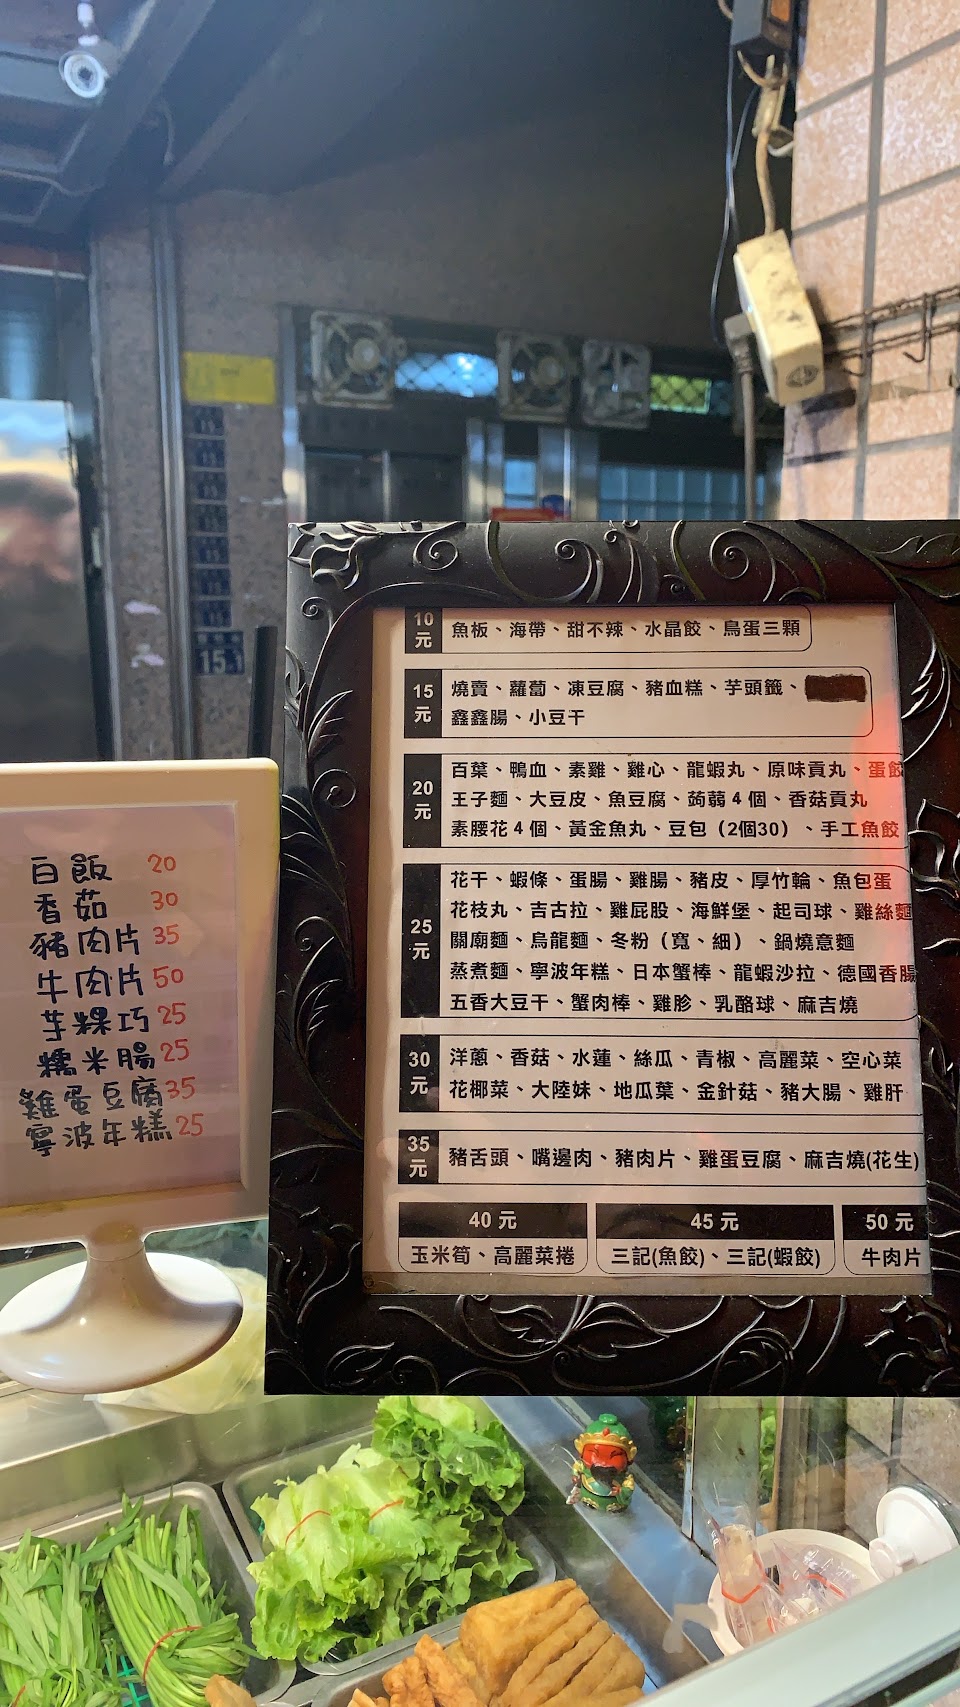 15.1
白飯 20
香茹 30
豬肉片 35
牛肉片 50
芋粿巧 25
糯米腸 25
雞蛋豆腐 35
寧波年糕 25
10元
魚板、海帶、甜不辣、水晶餃、鳥蛋三顆
15元
燒賣、蘿蔔、凍豆腐、豬血糕、芋頭籤、
鑫鑫腸、小豆干
20元
百葉、鴨血、素雞、雞心、龍蝦丸、原味貢丸、蛋餃
王子麵、大豆皮、魚豆腐、蒟蒻4個、香菇貢丸
素腰花4個、黃金魚丸、豆包（2個30）、手工魚餃
25元
花干、蝦條、蛋腸、雞腸、豬皮、厚竹輪、魚包蛋
花枝丸、吉古拉、雞屁股、海鮮堡、起司球、雞絲麵
關廟麵、烏龍麵、冬粉（寬、細）、鍋燒意麵
蒸煮麵、寧波年糕、日本蟹棒、龍蝦沙拉、德國香腸
五香大豆干、蟹肉棒、雞胗、乳酪球、麻吉燒
30元
洋蔥、香菇、水蓮、絲瓜、青椒、高麗菜、空心菜
花椰菜、大陸妹、地瓜葉、金針菇、豬大腸、雞肝
35元
豬舌頭、嘴邊肉、豬肉片、雞蛋豆腐、麻吉燒(花生)
40元
玉米筍、高麗菜捲
45元
三記(魚餃)、三記(蝦餃)
50元
牛肉片